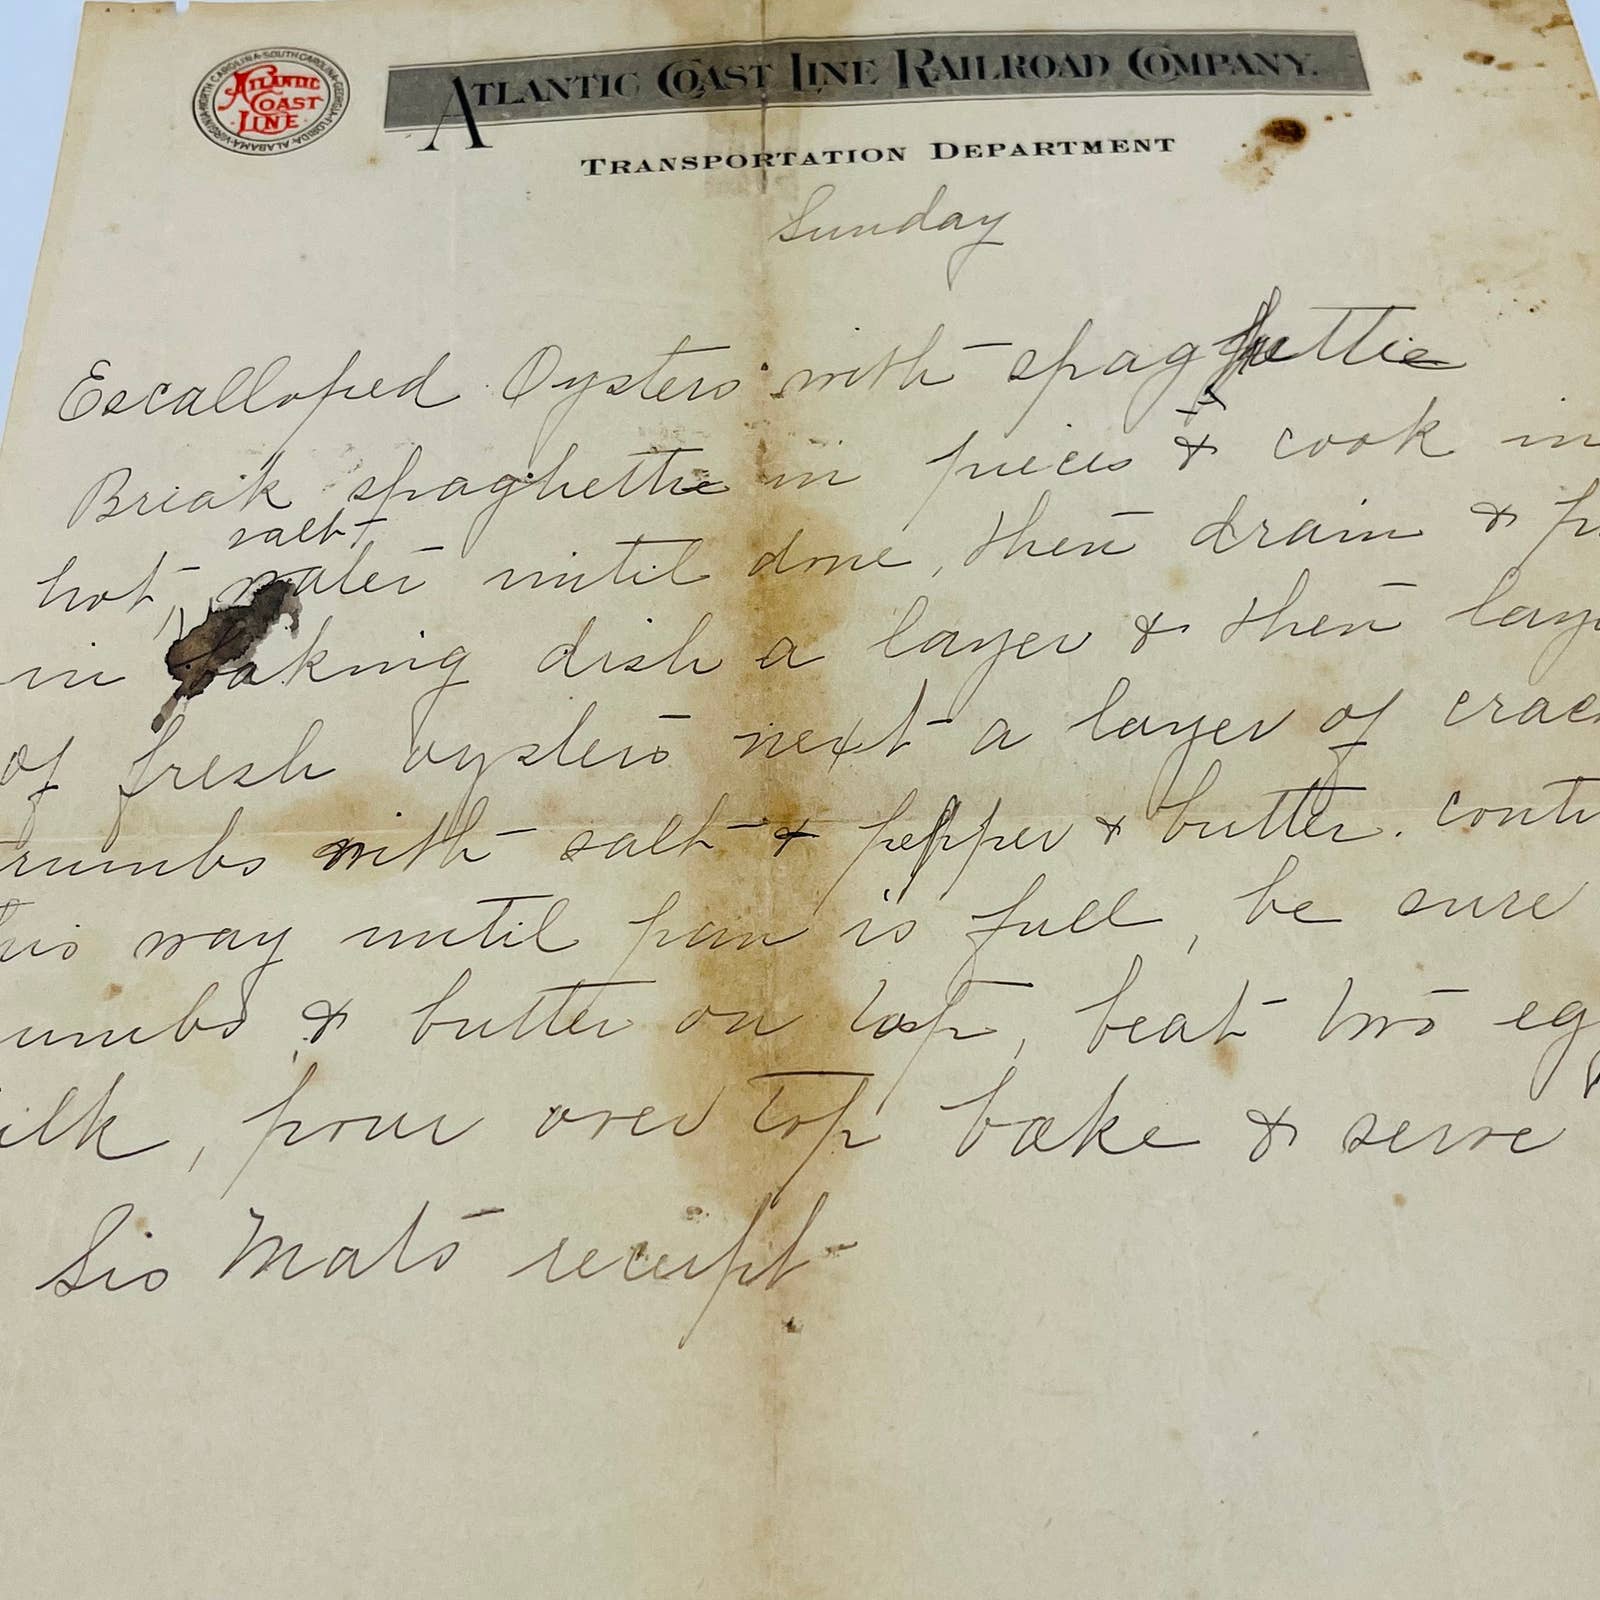 VIRGINIA·NORTH CAROLINA·SOUTH CAROLINA·GEORGIA·FLORIDA·ALABAMA
ATLANTIC
COAST
LINE
ATLANTIC COAST LINE RAILROAD COMPANY.
TRANSPORTATION DEPARTMENT
Sunday
Escalloped Oysters with spaghettie
Break spaghettie in pieces & cook in
salt
hot, water until done, then drain & p
in baking dish a layer & then lay
of fresh oysters next a layer of crac
rumbs with salt & pepper & butter. conti
his way until pan is full, be sure
umbs & butter on top, beat two eg
ilk, pour over top bake & serve
Sis Mats receipt